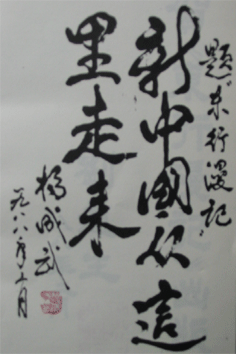 题东行漫记
新中國从這
里走来
杨成武
一九八八年十一月